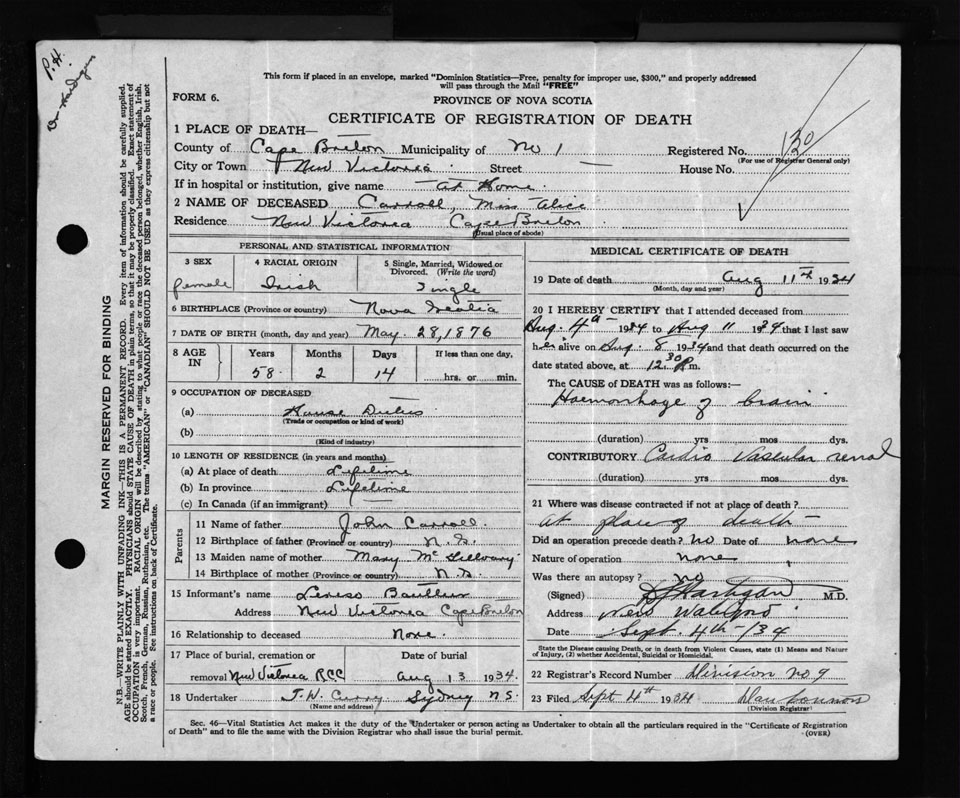 P.H.
Dr Hardigan
This form if placed in an envelope, marked "Dominion Statistics—Free, penalty for improper use, $300," and properly addressed
will pass through the Mail "FREE"
FORM 6.
PROVINCE OF NOVA SCOTIA
CERTIFICATE OF REGISTRATION OF DEATH
1 PLACE OF DEATH—
County of Cape Breton Municipality of No 1 Registered No. 130
(For use of Registrar General only)
City or Town New Victoria Street — House No.
If in hospital or institution, give name At Home.
2 NAME OF DECEASED Carroll, Miss Alice
Residence New Victoria Cape Breton
(Usual place of abode)
PERSONAL AND STATISTICAL INFORMATION
3 SEX
female
4 RACIAL ORIGIN
Irish
5 Single, Married, Widowed or
Divorced. (Write the word)
Single
6 BIRTHPLACE (Province or country) Nova Scotia
7 DATE OF BIRTH (month, day and year) May 28, 1876
8 AGE
IN
Years Months Days If less than one day,
58 2 14 hrs. or min.
9 OCCUPATION OF DECEASED
(a) House Duties
(Trade or occupation or kind of work)
(b)
(Kind of industry)
10 LENGTH OF RESIDENCE (in years and months)
(a) At place of death Lifetime
(b) In province Lifetime
(c) In Canada (if an immigrant)
Parents
11 Name of father John Carroll.
12 Birthplace of father (Province or country) N.S.
13 Maiden name of mother Mary Mc
14 Birthplace of mother (Province or country) N.S.
15 Informant's name
Address New Victoria Cape Breton
16 Relationship to deceased None.
17 Place of burial, cremation or Date of burial
removal New Victoria RCC Aug 13 1934.
18 Undertaker T. W. Curry Sydney N.S.
(Name and address)
MEDICAL CERTIFICATE OF DEATH
19 Date of death Aug 11th 1934
(Month, day and year)
20 I HEREBY CERTIFY that I attended deceased from
Aug. 4th 1934 to Aug 11 1934 that I last saw
her alive on Aug. 8 1934 and that death occurred on the
date stated above, at 12.30 P.m.
The CAUSE of DEATH was as follows:
Haemorrhage of brain
(duration) yrs mos dys.
CONTRIBUTORY Cardio Vascular renal
(duration) yrs. mos. dys.
21 Where was disease contracted if not at place of death?
at place of death —
Did an operation precede death? no Date of none
Nature of operation none
Was there an autopsy? no
(Signed) Hartigan M.D.
Address New Waterford
Date Sept. 4th - 34
State the Disease causing Death, or in death from Violent Causes, state (1) Means and Nature
of Injury, (2) whether Accidental, Suicidal or Homicidal.
22 Registrar's Record Number Division No. 9
23 Filed Sept 4th 1934 Dan Connors
(Division Registrar)
Sec. 46—Vital Statistics Act makes it the duty of the Undertaker or person acting as Undertaker to obtain all the particulars required in the "Certificate of Registration
of Death" and to file the same with the Division Registrar who shall issue the burial permit.
(OVER)
MARGIN RESERVED FOR BINDING
N.B.—WRITE PLAINLY WITH UNFADING INK—THIS IS A PERMANENT RECORD. Every item of information should be carefully supplied.
AGE should be stated EXACTLY. PHYSICIANS should STATE CAUSE OF DEATH in plain terms, so that it may be properly classified. Exact statement of
OCCUPATION is very important. RACIAL ORIGIN will be described by stating to what people or race the deceased person belonged, whether English, Irish,
Scotch, French, German, Russian, Ruthenian, etc. The terms "AMERICAN" or "CANADIAN" SHOULD NOT BE USED as they express citizenship but not
a race or people. See instructions on back of Certificate.